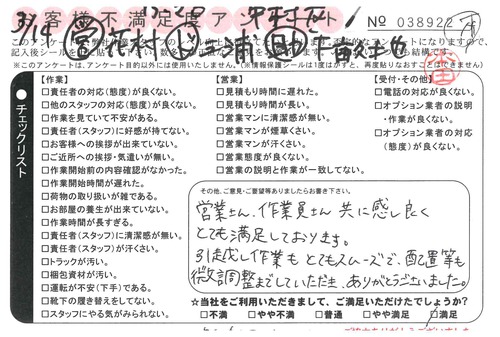 お客様不満足度アンケート
No 038922
3/14
記入後シールを
※このアンケートは、アンケート目的以外には使用いたしません。(※情報保護シールは1度はがすと、再度貼りなおすことはできません)
●チェックリスト
【作業】
□責任者の対応(態度)が良くない。
□他のスタッフの対応(態度)が良くない。
□作業を見ていて不安がある。
□責任者(スタッフ)に好感が持てない。
□お客様への挨拶が出来ていない。
□ご近所への挨拶・気遣いが無い。
□作業開始前の内容確認がなかった。
□作業開始時間が遅れた。
□荷物の取り扱いが雑である。
□お部屋の養生が出来ていない。
□作業時間が長すぎる。
□責任者(スタッフ)に清潔感が無い。
□責任者(スタッフ)が汗くさい。
□トラックが汚い。
□梱包資材が汚い。
□運転が不安(下手)である。
□靴下の履き替えをしてない。
□スタッフにやる気がみられない。
【営業】
□見積もり時間に遅れた。
□見積もり時間が長い。
□営業マンに清潔感が無い。
□営業マンが煙草くさい。
□営業マンが汗くさい。
□営業態度が良くない。
□営業の説明と作業が一致してない。
【受付・その他】
□電話の対応が良くない。
□オプション業者の説明
・作業が良くない。
□オプション業者の対応
(態度)が良くない。
その他、ご意見・ご要望等ありましたらお書き下さい。
営業さん、作業員さん共に感じ良く
とても満足しております。
引越し作業もとてもスムーズで、配置等も
微調整までしていただき、ありがとうございました。
☆当社をご利用いただきまして、ご満足いただけたでしょうか?
□不満 □やや不満 □普通 □やや満足 □満足